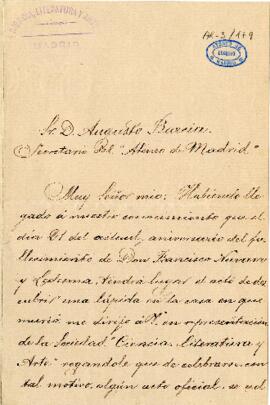 CIENCIA, LITERATURA Y ARTE
MADRID
Sr. D. Augusto Barcia.
Secretario del "Ateneo de Madrid"
Muy Señor mio: Habiendo lle
gado á nuestro conocimiento que el
día 21 del actual, aniversario del fa
llecimiento de Don Francisco Navarro
y Ledesma, tendrá lugar el acto de des
cubrir una lápida en la casa en que
murió me dirijo á V. en representación
de la Sociedad "Ciencia, Literatura y
Arte" rogandole que de celebrarse con
tal motivo, algún acto oficial, se